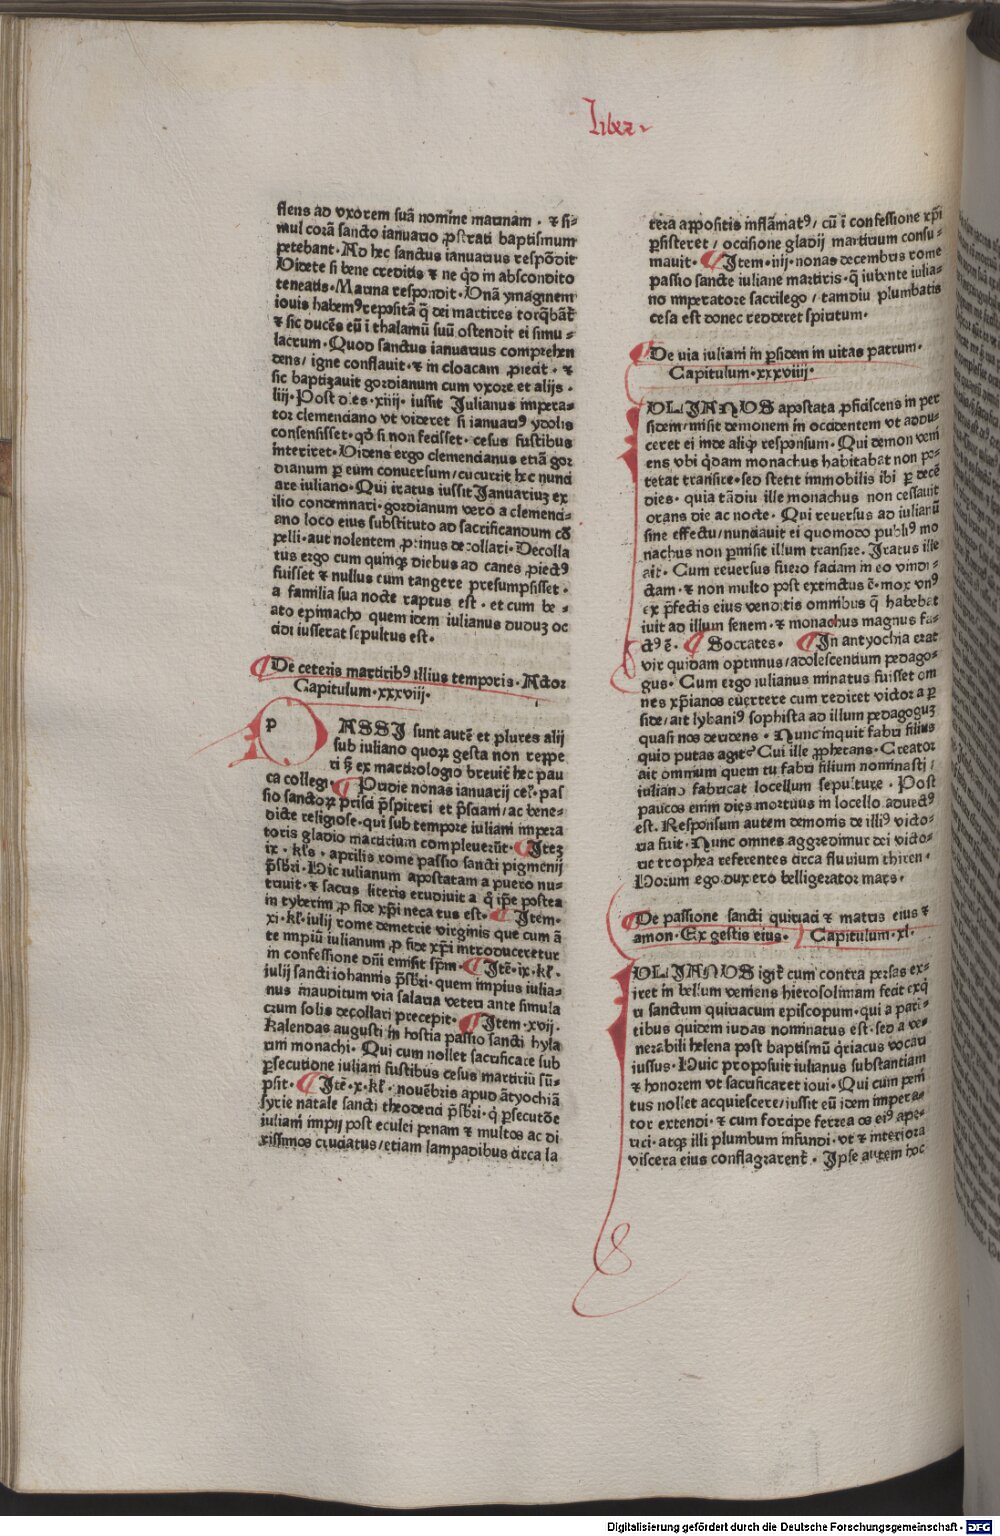 Liber
flens ad vxorem suã nomine marinam . ⁊ si⸗
mul corã sancto ianuario ꝓstrati baptismum
petebant . Ad hec sanctus ianuarius respõdit
Videte si bene creditis ⁊ ne qͥd in abscondito
teneatis . Marina respondit . Vnã ymaginem
iouis habemꝰ repositã q̃ dei martires torq̃bãt̃
⁊ sic ducẽs eũ ĩ thalamũ suũ ostendit ei simu⸗
lacrum . Quod sanctus ianuarius comprehen
dens / igne conflauit . ⁊ in cloacam ꝓiecit . ⁊
sic baptizauit gordianum cum vxore et alijs .
liij . Post dies . xiiij . iussit Julianus impera⸗
tor clemenciano vt videret si ianuariꝰ ydolis
consensisset . qͦd si non fecisset . cesus fustibus
interiret . Videns ergo clemencianus etiã gor
dianum ꝑ eum conuersum / cucurrit hec nunci
are iuliano . Qui iratus iussit Januariuꝫ ex
ilio condemnari . gordianum vero a clemenci⸗
ano loco eius substituto ad sacrificandum cõ
pelli . aut nolentem ꝓtinus decollari . Decolla
tus ergo cum quinqꝫ diebus ad canes ꝓiectꝰ
fuisset ⁊ nullus eum tangere presumpsisset .
a familia sua nocte raptus est . et cum be ⸗
ato epimacho quem idem iulianus duduꝫ oc
cidi iusserat sepultus est .
De ceteris martiribꝰ illius temporis . Actor
Capitulum . xxxviij .
p
ASSI sunt autẽ et plures alij
sub iuliano quoꝝ gesta non reppe
ri sꝫ ex martirologio breuit̃ hec pau
ca collegi . ¶ Pridie nonas ianuarij cel . pas
sio sanctoꝝ prisci p̃spiteri et p̃sciani / ac bene⸗
dicte religiose . qui sub tempore iuliani impera
toris gladio martirium compleuerũt . ¶ Iteꝫ
ix . kl̃s . aprilis rome passio sancti pigmenij
p̃sbri . Hic iulianum apostatam a puero nu⸗
triuit . ⁊ sacris literis erudiuit a qͦ ip̃e postea
in tyberim ꝓ fide xp̃i neca tus est . ¶ Item .
xi . kl̃ . iulij rome demetrie virginis que cum ã
te impiũ iulianum ꝓ fide xp̃i introduceretur
in confessione dñi emisit sp̃m . ¶ Itẽ . ix . kl̃ .
iulij sancti iohannis p̃sbri . quem impius iulia⸗
nus inauditum via salaria veteri ante simula
crum solis decollari precepit . ¶ Item . xvij .
kalendas augusti in hostia passio sancti hyla
rini monachi . Qui cum nollet sacrificare sub
ꝑsecutione iuliani fustibus cesus martiriũ sũ⸗
psit . ¶ Itẽ . x . kl̃ . nouẽbris apud ãtyochiã
syrie natale sancti theoderici p̃sbri . qͥ ꝑsecutõe
iuliani impij post eculei penam ⁊ multos ac di
rissimos cruciatus / etiam lampadibus circa la
tera appositis inflãmatꝰ / cũ ĩ confessione xp̃i
ꝑsisteret / occisione gladij martirium consu⸗
mauit . ¶ Item . iiij . nonas decembris rome
passio sancte iuliane martiris . q̃ iubente iulia⸗
no imperatore sacrilego / tamdiu plumbatis
cesa est donec redderet spiritum .
De via iuliani in ꝑsidem in vitas patrum .
Capitulum . xxxviiij .
VLIANVS apostata ꝓficiscens in per
sidem / misit demonem in occidentem vt addu⸗
ceret ei inde aliqͥ responsum . Qui demon veni
ens vbi qͥdam monachus habitabat non po⸗
terat transire . sed stetit immobilis ibi ꝑ decẽ
dies . quia tãdiu ille monachus non cessauit
orans die ac nocte . Qui reuersus ad iulianũ
sine effectu / nunciauit ei quomodo publiꝰ mo
nachus non ꝑmisit illum transire . Iratus ille
ait . Cum reuersus fuero faciam in eo vindi⸗
ctam . ⁊ non multo post extinctus ẽ . mox vnꝰ
ex p̃fectis eius venditis omnibus q̃ habebat
iuit ad illum senem . ⁊ monachus magnus fa⸗
ctꝰ ẽ . ¶ Socrates . ¶ In antyochia erat
vir quidam optimus / adolescentium pedago⸗
gus . Cum ergo iulianus minatus fuisset om
nes xp̃ianos euertere cum rediret victor a ꝑ
side / ait lybaniꝰ sophista ad illum pedagoguꝫ
quasi nos deridens . Nunc inquit fabri filius
quid putas agit? Cui ille ꝓphetans . Creator
ait omnium quem tu fabri filium nominasti /
iuliano fabricat locellum sepulture . Post
paucos enim dies mortuus in locello aduectꝰ
est . Responsum autem demonis de illiꝰ victo⸗
ria fuit . Nunc omnes aggredimur dei victo⸗
rie trophea referentes circa fluuium thiren .
Horum ego dux ero belligerator mars .
De passione sancti quiriaci ⁊ matris eius ⁊
amon . Ex gestis eius . Capitulum . xl .
VLIANVS igit̃ cum contra persas ex⸗
iret in bellum veniens hierosolimam fecit exqͥ
ri sanctum quiriacum episcopum . qui a pari⸗
tibus quidem iudas nominatus est . sed a ve⸗
nerabili helena post baptismũ qͥriacus vocari
iussus . Huic proposuit iulianus substantiam
⁊ honorem vt sacrificaret ioui . Qui cum peni
tus nollet acquiescere / iussit eũ idem impera⸗
tor extendi . ⁊ cum forcipe ferrea os eiꝰ ape⸗
riri . atqꝫ illi plumbum infundi . vt ⁊ interiora
viscera eius conflagrarent̃ . Ipse autem hoc
Digitalisierung gefördert durch die Deutsche Forschungsgemeinschaft - DFG